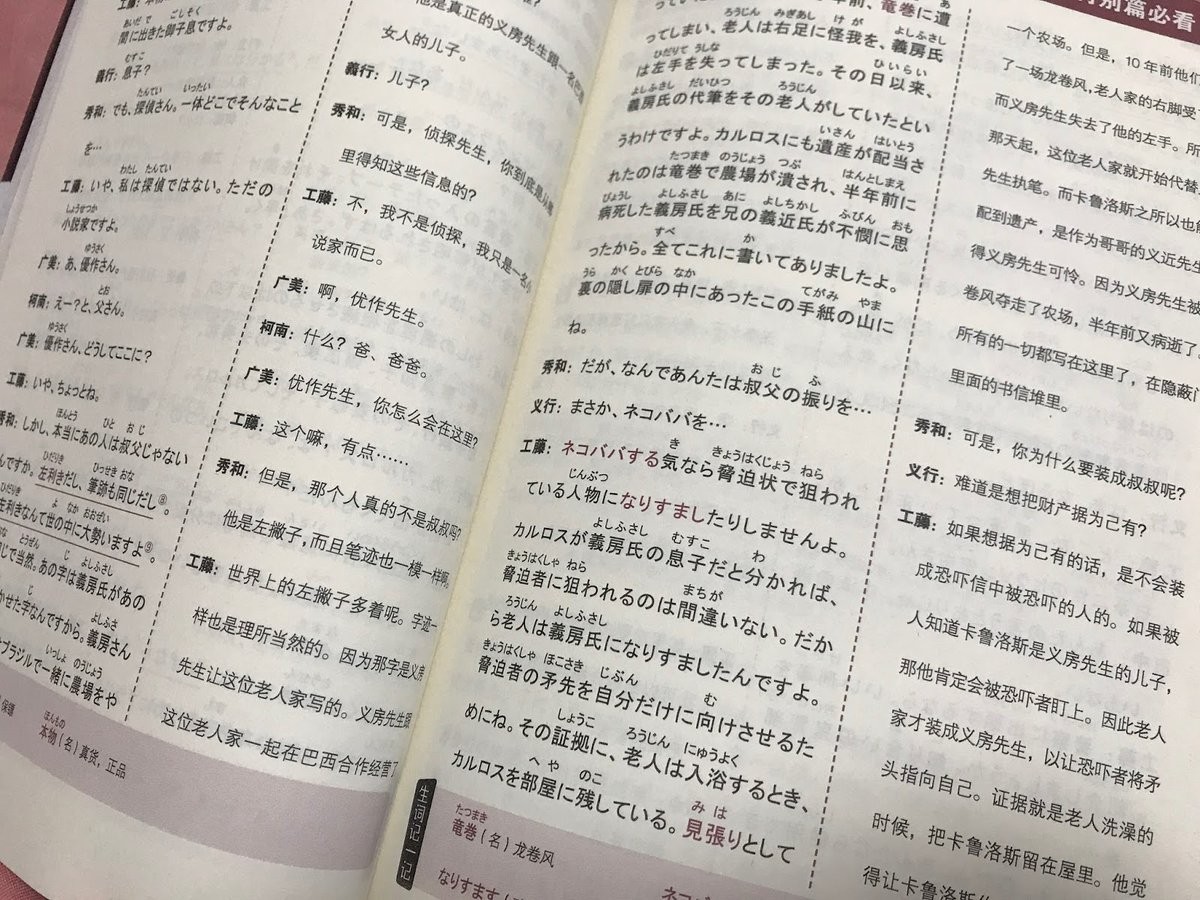 間に出きた御子息ですよ。
義行：息子？
秀和：でも、探偵さん。一体どこでそんなこと
を…
工藤：いや、私は探偵ではない。ただの
小説家ですよ。
广美：あ、優作さん。
柯南：えー？と、父さん。
广美：優作さん、どうしてここに？
工藤：いや、ちょっとね。
秀和：しかし、本当にあの人は叔父じゃない
んですか。左利きだし、筆跡も同じだし⑧。
左利きなんて世の中に大勢いますよ⑨。
じで当然。あの字は義房氏があの
かせた字なんですから。義房さん
ブラジルで一緒に農場をや
本物（名）真货，正品
他是真正的义房先生跟一名巴
女人的儿子。
義行：儿子？
秀和：可是，侦探先生，你到底是从
里得知这些信息的？
工藤：不，我不是侦探，我只是一名小
说家而已。
广美：啊，优作先生。
柯南：什么？爸、爸爸。
广美：优作先生，你怎么会在这里？
工藤：这个嘛，有点……
秀和：但是，那个人真的不是叔叔吗？
他是左撇子，而且笔迹也一模一样啊
工藤：世界上的左撇子多着呢。字迹一
样也是理所当然的。因为那字是义房
先生让这位老人家写的。义房先生跟
这位老人家一起在巴西合作经营了
年前、竜巻に遭
ってしまい、老人は右足に怪我を、義房氏
は左手を失ってしまった。その日以来、
義房氏の代筆をその老人がしていたとい
うわけですよ。カルロスにも遺産が配当さ
れたのは竜巻で農場が潰され、半年前に
病死した義房氏を兄の義近氏が不憫に思
ったから。全てこれに書いてありましたよ。
裏の隠し扉の中にあったこの手紙の山に
ね。
秀和：だが、なんであんたは叔父の振りを…
义行：まさか、ネコババを…
工藤：ネコババする気なら脅迫状で狙われ
ている人物になりすましたりしませんよ。
カルロスが義房氏の息子だと分かれば、
脅迫者に狙われるのは間違いない。だか
ら老人は義房氏になりすましたんですよ。
脅迫者の矛先を自分だけに向けさせるた
めにね。その証拠に、老人は入浴するとき、
カルロスを部屋に残している。見張りとして
生词记一记
竜巻（名）龙卷风
なりすます
别篇必看
一个农场。但是，10 年前他们
了一场龙卷风，老人家的右脚受
而义房先生失去了他的左手。所
那天起，这位老人家就开始代替
先生执笔。而卡鲁洛斯之所以也能
配到遗产，是作为哥哥的义近先生
得义房先生可怜。因为义房先生被
卷风夺走了农场，半年前又病逝了
所有的一切都写在这里了，在隐蔽门
里面的书信堆里。
秀和：可是，你为什么要装成叔叔呢？
义行：难道是想把财产据为己有？
工藤：如果想据为己有的话，是不会装
成恐吓信中被恐吓的人的。如果被
人知道卡鲁洛斯是义房先生的儿子，
那他肯定会被恐吓者盯上。因此老人
家才装成义房先生，以让恐吓者将矛
头指向自己。证据就是老人洗澡的
时候，把卡鲁洛斯留在屋里。他觉
得让卡鲁洛斯